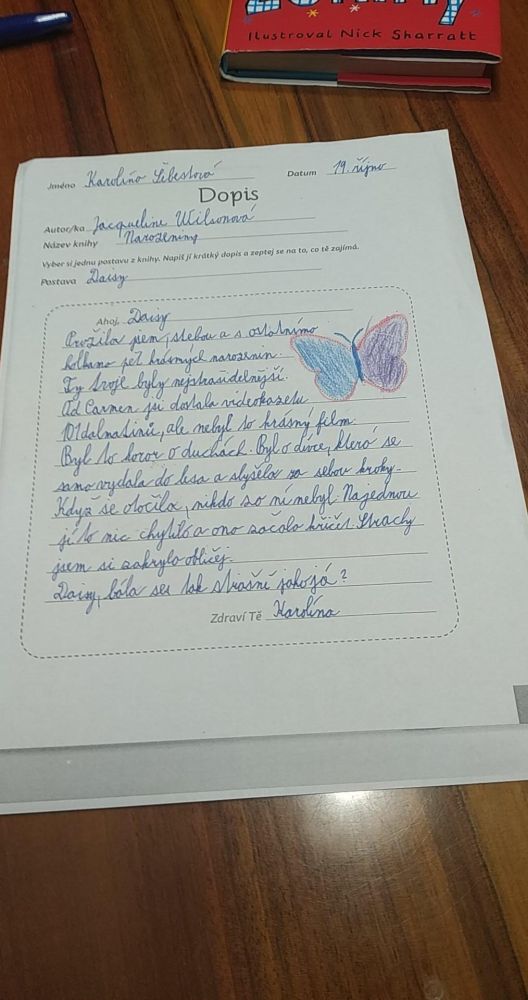 Ilustroval Nick Sharratt
Jméno Karolína Šebestová Datum 19. říjno
Dopis
Autor/ka Jacqueline Wilsonová
Název knihy Narozeniny
Vyber si jednu postavu z knihy. Napiš jí krátký dopis a zeptej se na to, co tě zajímá.
Postava Daisy
Ahoj, Daisy
Prožila jsem s tebou a s ostatníma
holkama pět krásných narozenin.
Ty tvoje byly nejstrašidelnější.
Od Carmen jsi dostala videokazetu
101dalmatinů, ale nebyl to krásný film.
Byl to horor o duchách. Byl o dívce, která se
sama vydala do lesa a slyšela za sebou kroky.
Když se otočila, nikdo za ní nebyl. Najednou
ji to nic chytilo a ono začala křičet. Strachy
jsem si zakryla obličej.
Daisy, bála ses tak strašně jako já?
Zdraví Tě Karolína